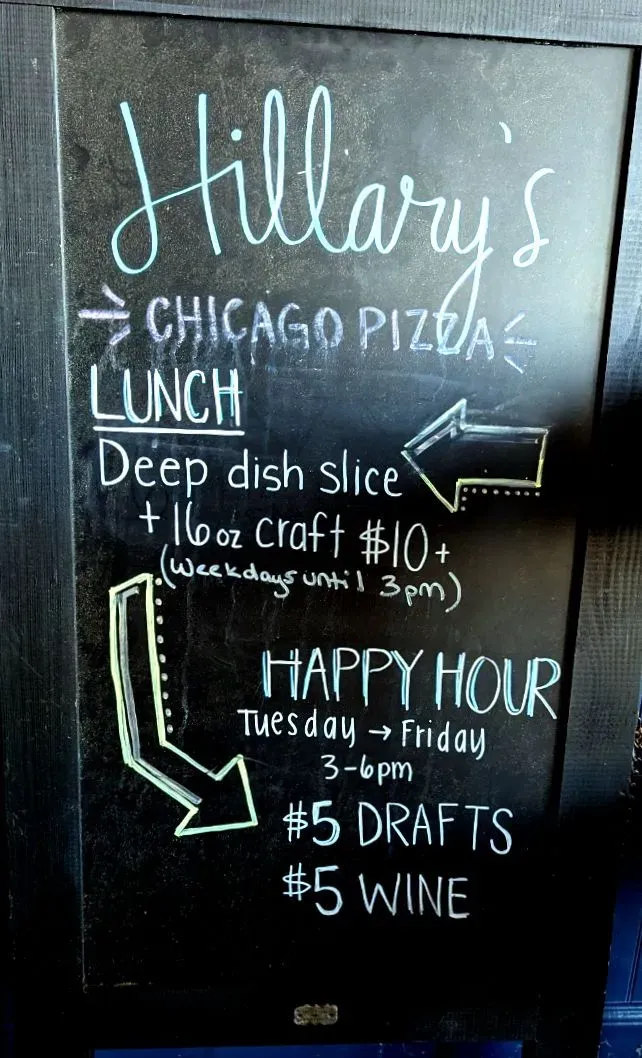 Hillary's
CHICAGO PIZZA
LUNCH
Deep dish slice
+ 16oz craft $10+
(weekdays until 3pm)
HAPPY HOUR
Tuesday → Friday
3-6pm
$5 DRAFTS
$5 WINE